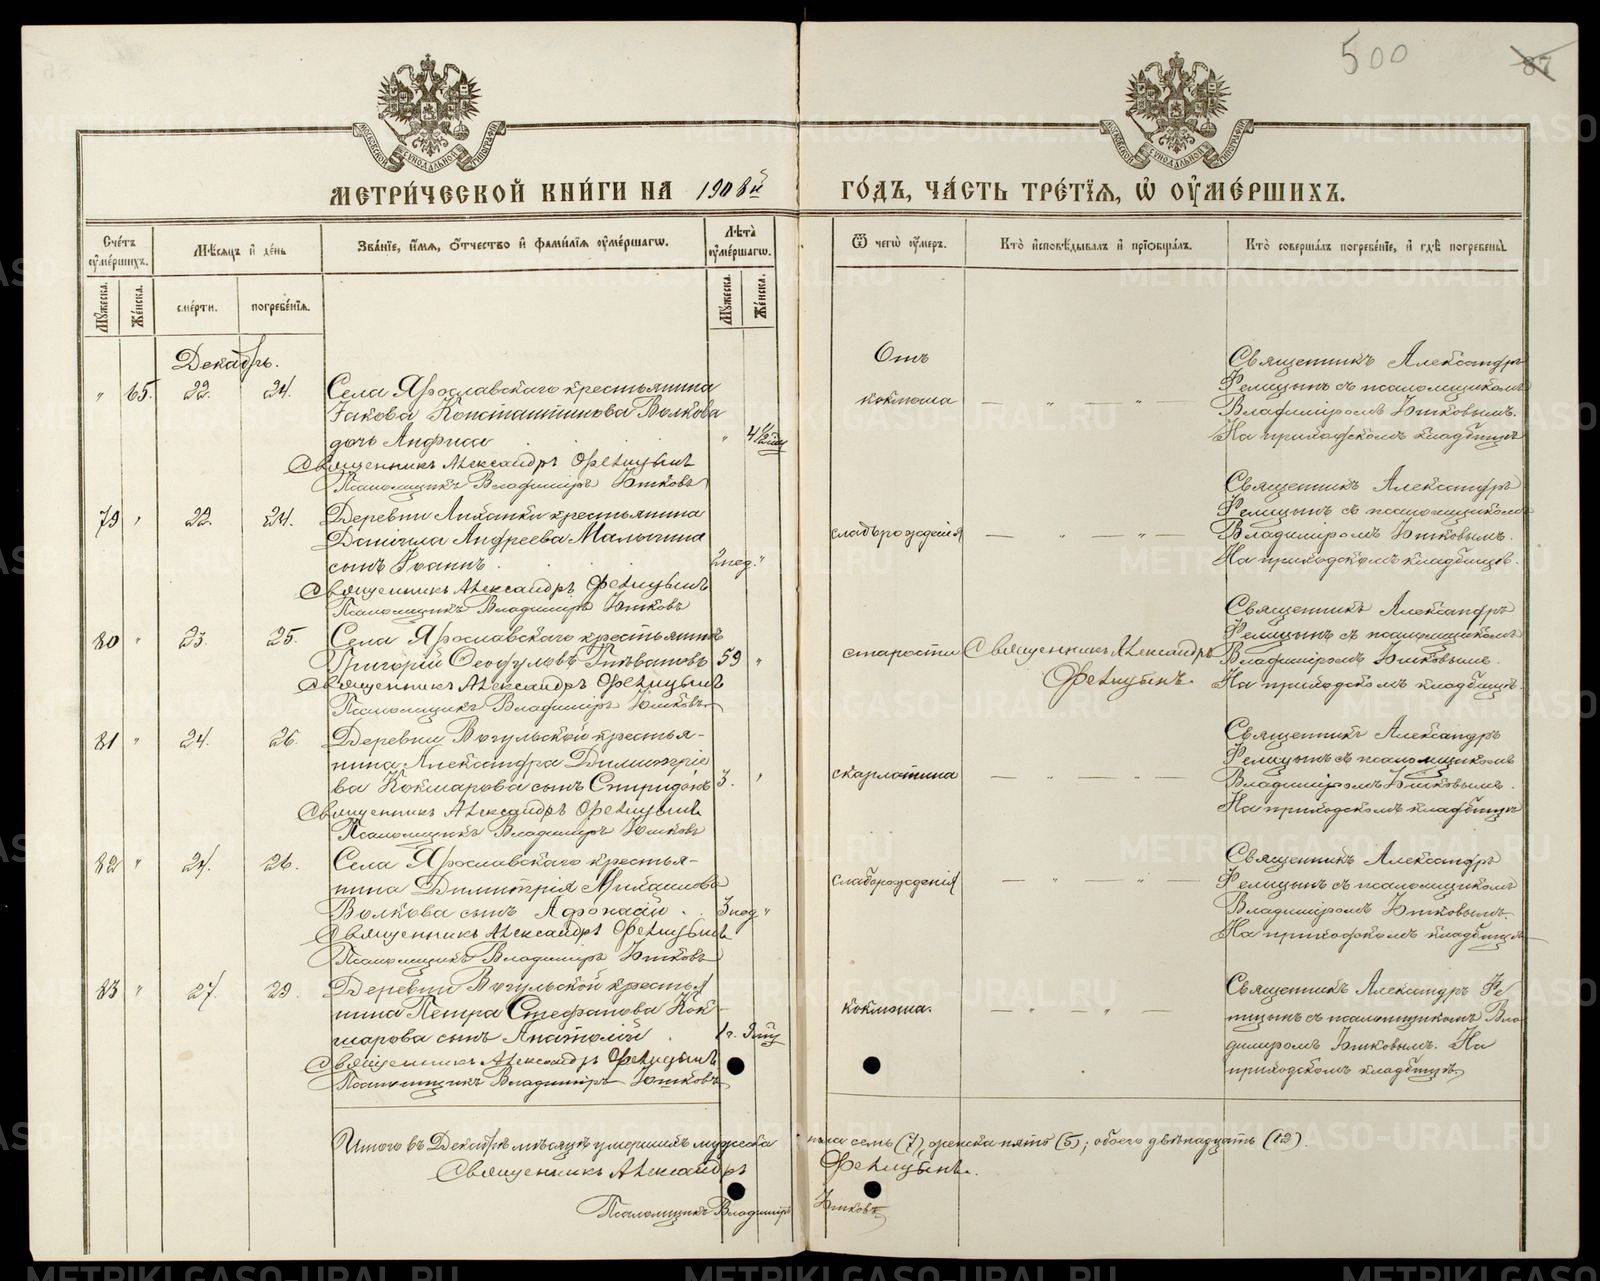 500
87
МОСКОВСКОЙ СѴНОДАЛЬНОЙ ТИПОГРАФІИ
МОСКОВСКОЙ СѴНОДАЛЬНОЙ ТИПОГРАФІИ
МЕТРИ́ЧЕСКОЙ КНИ́ГИ НА 1908й ГО́ДЪ, ЧА́СТЬ ТРЕ́ТІЯ, Ѡ ОУМЕ́РШИХЪ.
Сче́тъ оуме́ршихъ.
Мѣсяцъ и де́нь
Зва́ніе, и́мя, о́тчество и фами́лія оуме́ршагѡ.
Лѣта̀ оуме́ршагѡ.
Ѿ чегѡ̀ оу́меръ.
Кто̀ исповѣ́дывалъ и пріобща́лъ.
Кто̀ соверша́лъ погребе́ніе, и гдѣ̀ погребены̀.
Мꙋ́жеска.
Же́нска.
сме́рти.
погребе́нія.
Мꙋ́жеска.
Же́нска.
Декабрь.
" 65. 22. 24.
Села Ярославскаго крестьянина
Іакова Константинова Волкова
дочь Анфиса " 4 1/2 мц
Священникъ Александръ Фелицынъ
Псаломщикъ Владиміръ Юшковъ
Отъ
коклюша — " — " —
Священникъ Александръ
Фелицынъ съ псаломщикомъ
Владиміромъ Юшковымъ.
На приходскомъ кладбищѣ
79 " 22. 24.
Деревни крестьянина
Даніила Андреева Малыгина
сынъ Іоаннъ. 2 нед. "
Священникъ Александръ Фелицынъ
Псаломщикъ Владиміръ Юшковъ
слаборожденія — " — " —
Священникъ Александръ
Фелицынъ съ псаломщикомъ
Владиміромъ Юшковымъ.
На приходскомъ кладбищѣ.
80 " 23. 25.
Села Ярославскаго крестьянинъ
Григорій Ѳеофуловъ 59 "
Священникъ Александръ Фелицынъ
Псаломщикъ Владиміръ Юшковъ
старости Священникъ Александръ
Фелицынъ.
Священникъ Александръ
Фелицынъ съ псаломщикомъ
Владиміромъ Юшковымъ.
На приходскомъ кладбищѣ.
81 " 24. 26.
Деревни Вогульской крестья-
нина Александра Димитріе
ва Кокшарова сынъ Спиридонъ 3. "
Священникъ Александръ Фелицынъ
Псаломщикъ Владиміръ Юшковъ
скарлатина — " — " —
Священникъ Александръ
Фелицынъ съ псаломщикомъ
Владиміромъ Юшковымъ.
На приходскомъ кладбищѣ
82 " 24. 26.
Села Ярославскаго крестья-
нина Димитрія Михаилова
Волкова сынъ Афонасій. 3 нед "
Священникъ Александръ Фелицынъ
Псаломщикъ Владиміръ Юшковъ
слаборожденія — " — " —
Священникъ Александръ
Фелицынъ съ псаломщикомъ
Владиміромъ Юшковымъ.
На приходскомъ кладбищѣ
83 " 27. 29.
Деревни Вогульской крестья
нина Петра Стефанова Кок-
шарова сынъ Анатолій 1 г.
Священникъ Александръ Фелицынъ
Псаломщикъ Владиміръ Юшковъ
коклюша. — " — " —
Священникъ Александръ Фе-
лицынъ съ псаломщикомъ Вла-
диміромъ Юшковымъ. На
приходскомъ кладбищѣ
Итого въ Декабрѣ мѣсяцѣ умершихъ мужеска пола семь (7), женска пять (5); обоего двѣнадцать (12).
Священникъ Александръ Фелицынъ.
Псаломщикъ Владиміръ Юшковъ
METRIKI.GASO-URAL.RU